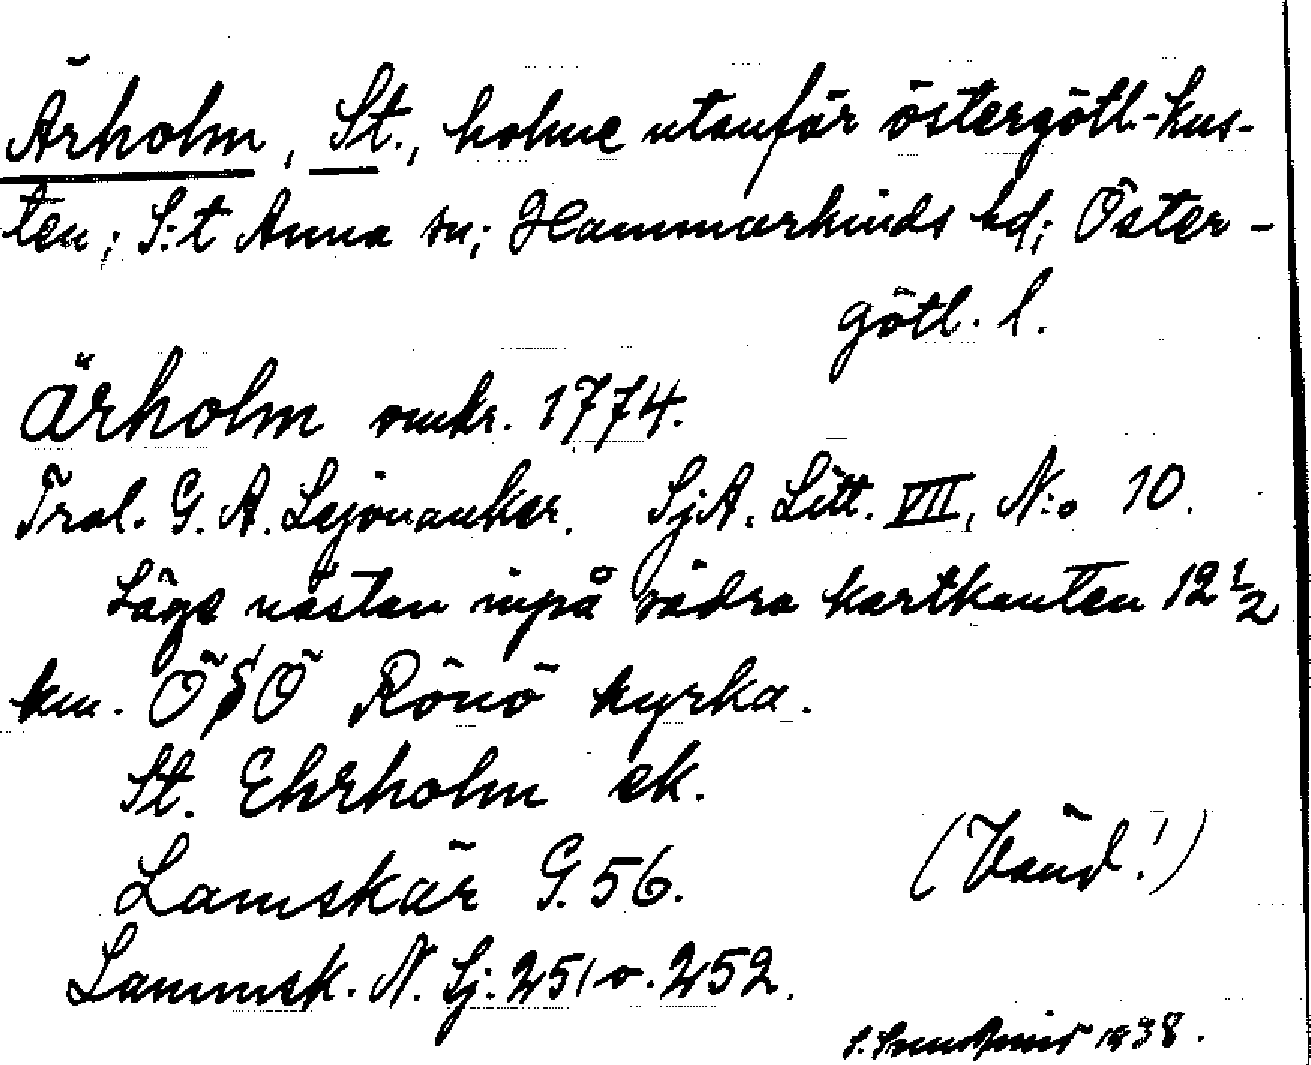 Ärholm, St., holme utanför östergötl.-kus-
ten; S:t Anna sn; Hammarkinds hd; Öster-
götl. l.
Ärholm omkr. 1774.
Trol. G. A. Lejonanker. SjA. Litt. VII, N:o 10.
Läge nästan inpå södra kartkanten 12 1/2
km. ÖSÖ Rönö kyrka.
St. Ehrholm ek.
Lamskär G. 56.
(Vänd!)
Lammsk. N. Sj. 251 o. 252.
1938.